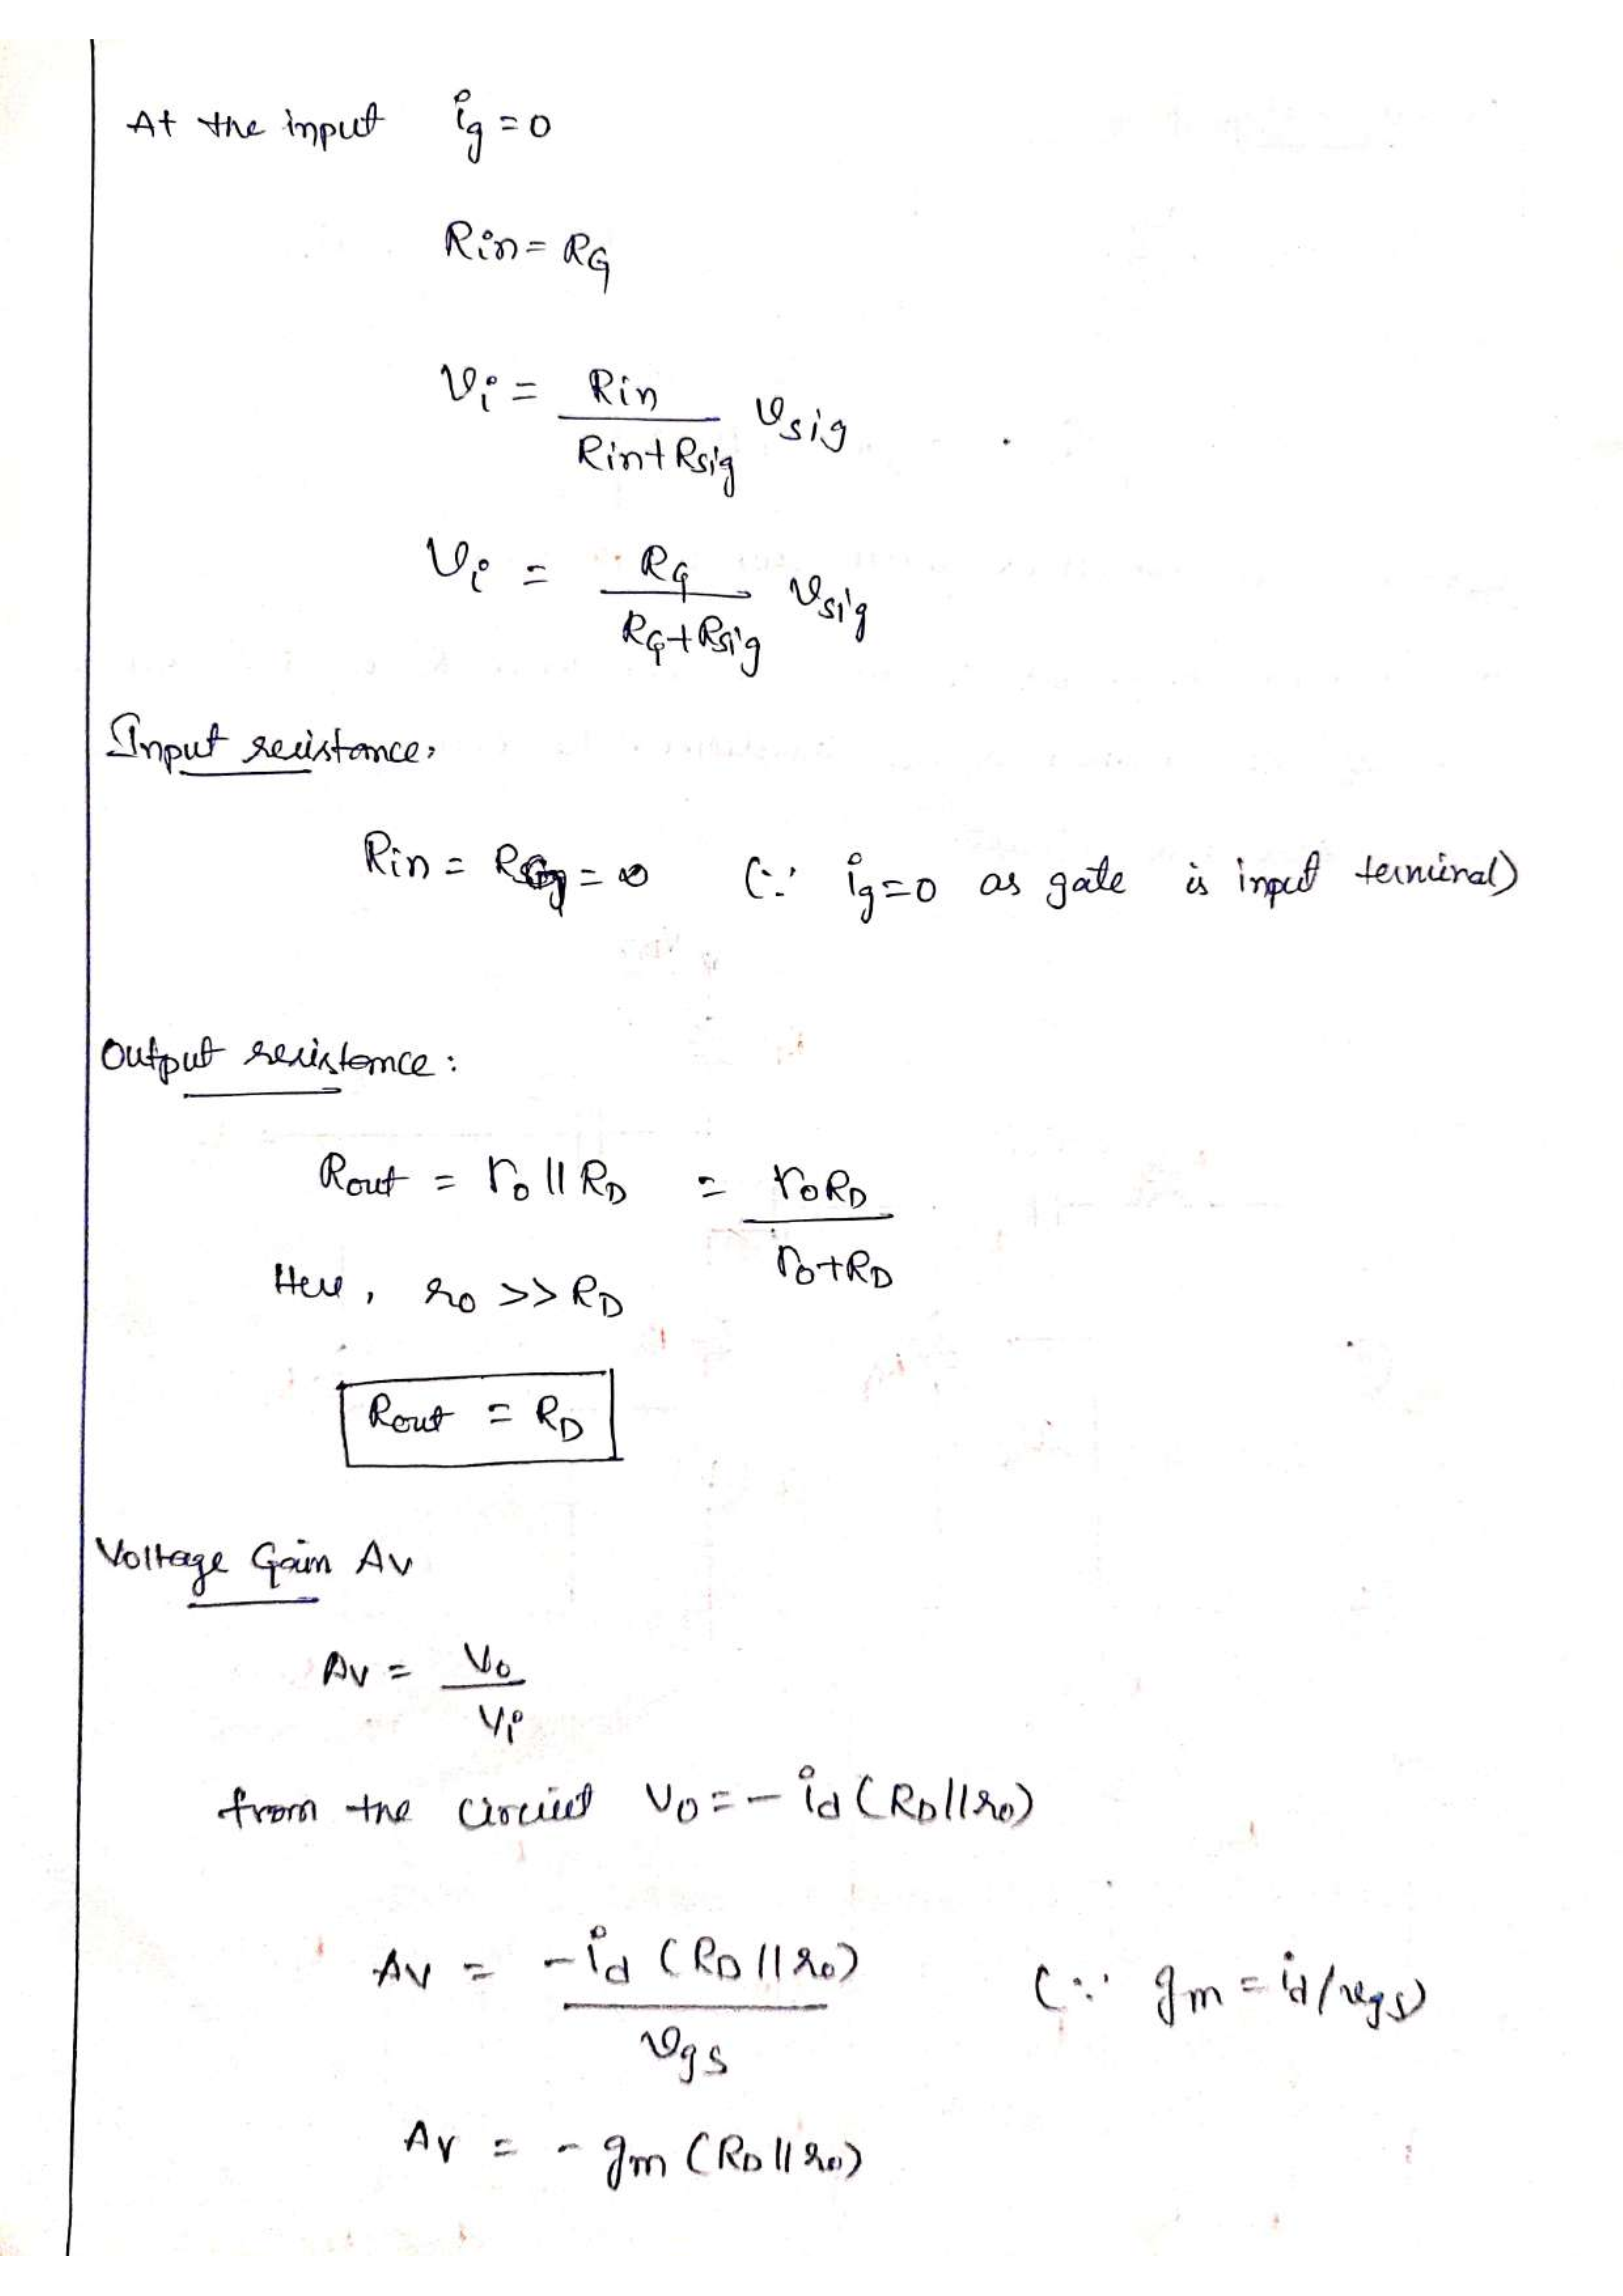 At the input ig = 0
Rin = RG
Vi = Rin / (Rin + Rsig) Vsig
Vi = RG / (RG + Rsig) Vsig
Input resistance:
Rin = RG = ∞ (∵ ig = 0 as gate is input terminal)
Output resistance:
Rout = ro || RD = ro RD / (ro + RD)
Here, ro >> RD
Rout = RD
Voltage Gain AV
AV = Vo / Vi
from the circuit Vo = - id (RD || ro)
AV = - id (RD || ro) / Vgs (∵ gm = id / vgs)
AV = - gm (RD || ro)